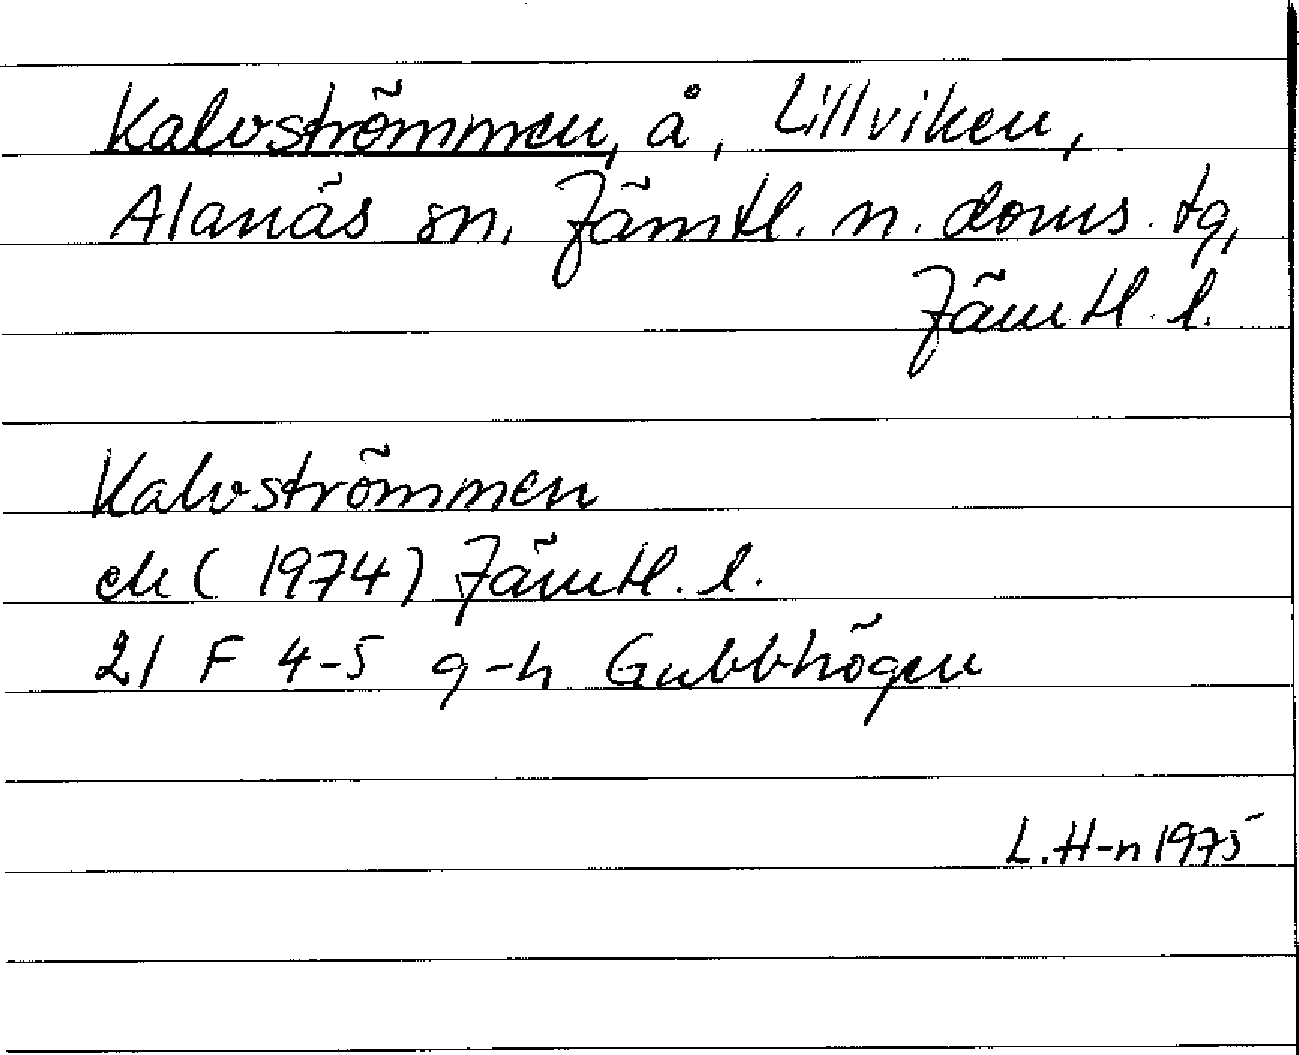 Kalvströmmen, å, Lillviken,
Alanäs sn, Jämtl. n. doms. tg,
Jämtl. l.
Kalvströmmen
ek (1974) Jämtl. l.
21 F 4-5 g-h Gubbhögen
L. H-n 1975